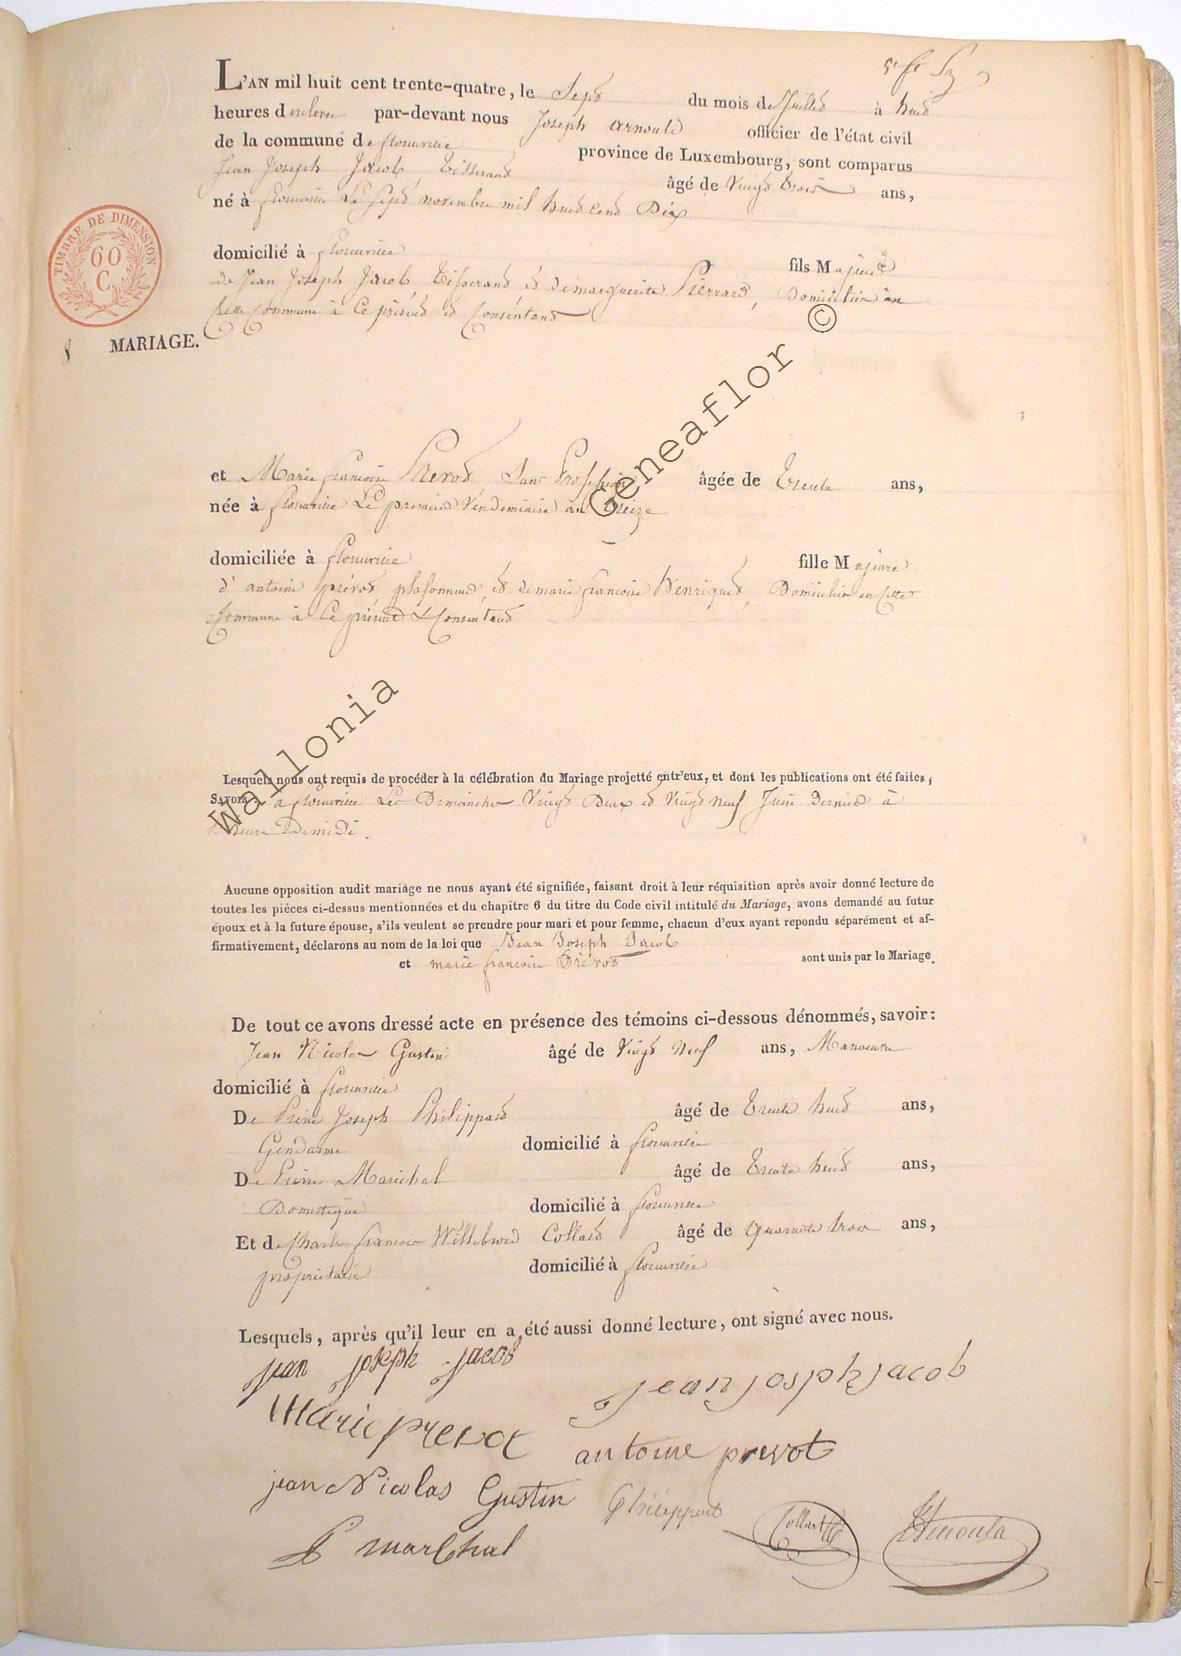 L'AN mil huit cent trente-quatre, le Sept du mois de Juillet à huit
heures du soir par-devant nous Joseph arnould officier de l'état civil
de la commune de florenville province de Luxembourg, sont comparus
Jean Joseph Jacob, Tisserand âgé de Vingt trois ans,
né à florenville Le Sept novembre mil huit cent Dix
domicilié à florenville fils Majeur
de Jean Joseph Jacob, Tisserand et de marguerite Pierrard, Domiciliés en
cette Commune à ce présent et Consentant
TIMBRE DE DIMENSION
60
C.
8 MARIAGE.
et Marie françoise Prévot Sans Profession âgée de Trente ans,
née à florenville Le premier Vendemiaire an treize
domiciliée à florenville fille Majeure
d'antoine prévot plafonneur, et de marie françoise Henriquet, Domiciliés en cette
Commune à ce présent & Consentant
Lesquels nous ont requis de procéder à la célébration du Mariage projetté entr'eux, et dont les publications ont été faites,
SAVOIR à florenville Les Dimanches Vingt Deux et Vingt neuf Juin dernier à
heure De midi.
Aucune opposition audit mariage ne nous ayant été signifiée, faisant droit à leur réquisition après avoir donné lecture de
toutes les pièces ci-dessus mentionnées et du chapitre 6 du titre du Code civil intitulé du Mariage, avons demandé au futur
époux et à la future épouse, s'ils veulent se prendre pour mari et pour femme, chacun d'eux ayant repondu séparément et af-
firmativement, déclarons au nom de la loi que Jean Joseph Jacob
et marie françoise Prévot sont unis par le Mariage.
De tout ce avons dressé acte en présence des témoins ci-dessous dénommés, savoir:
Jean Nicolas Gustin âgé de Vingt Neuf ans, Manoeuvre
domicilié à florenville
De Pierre Joseph Philippart âgé de Trente huit ans,
Gendarme domicilié à florenville
De Pierre Maréchal âgé de Trente huit ans,
Domestique domicilié à florenville
Et de Charles françois Willebrord Collard âgé de quarante trois ans,
propriétaire domicilié à florenville
Lesquels, après qu'il leur en a été aussi donné lecture, ont signé avec nous.
jean joseph jacob jean josph jacob
Marie prevot antoine prevot
jean Nicolas Gustin Philippart
P marechal Collard Arnould
Wallonia Geneaflor ©